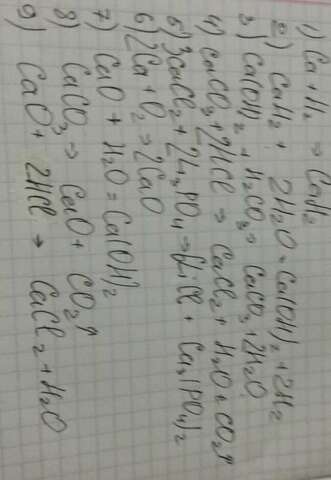 1) Ca + H₂ ⇒ CaH₂
2) CaH₂ + 2H₂O = Ca(OH)₂ + 2H₂
3) Ca(OH)₂ + H₂CO₃ ⇒ CaCO₃ + 2H₂O
4) CaCO₃ + 2HCl ⇒ CaCl₂ + H₂O + CO₂↑
5) 3CaCl₂ + 2Li₃PO₄ ⇒ 6LiCl + Ca₃(PO₄)₂
6) 2Ca + O₂ ⇒ 2CaO
7) CaO + H₂O = Ca(OH)₂
8) CaCO₃ ⇒ CaO + CO₂↑
9) CaO + 2HCl → CaCl₂ + H₂O